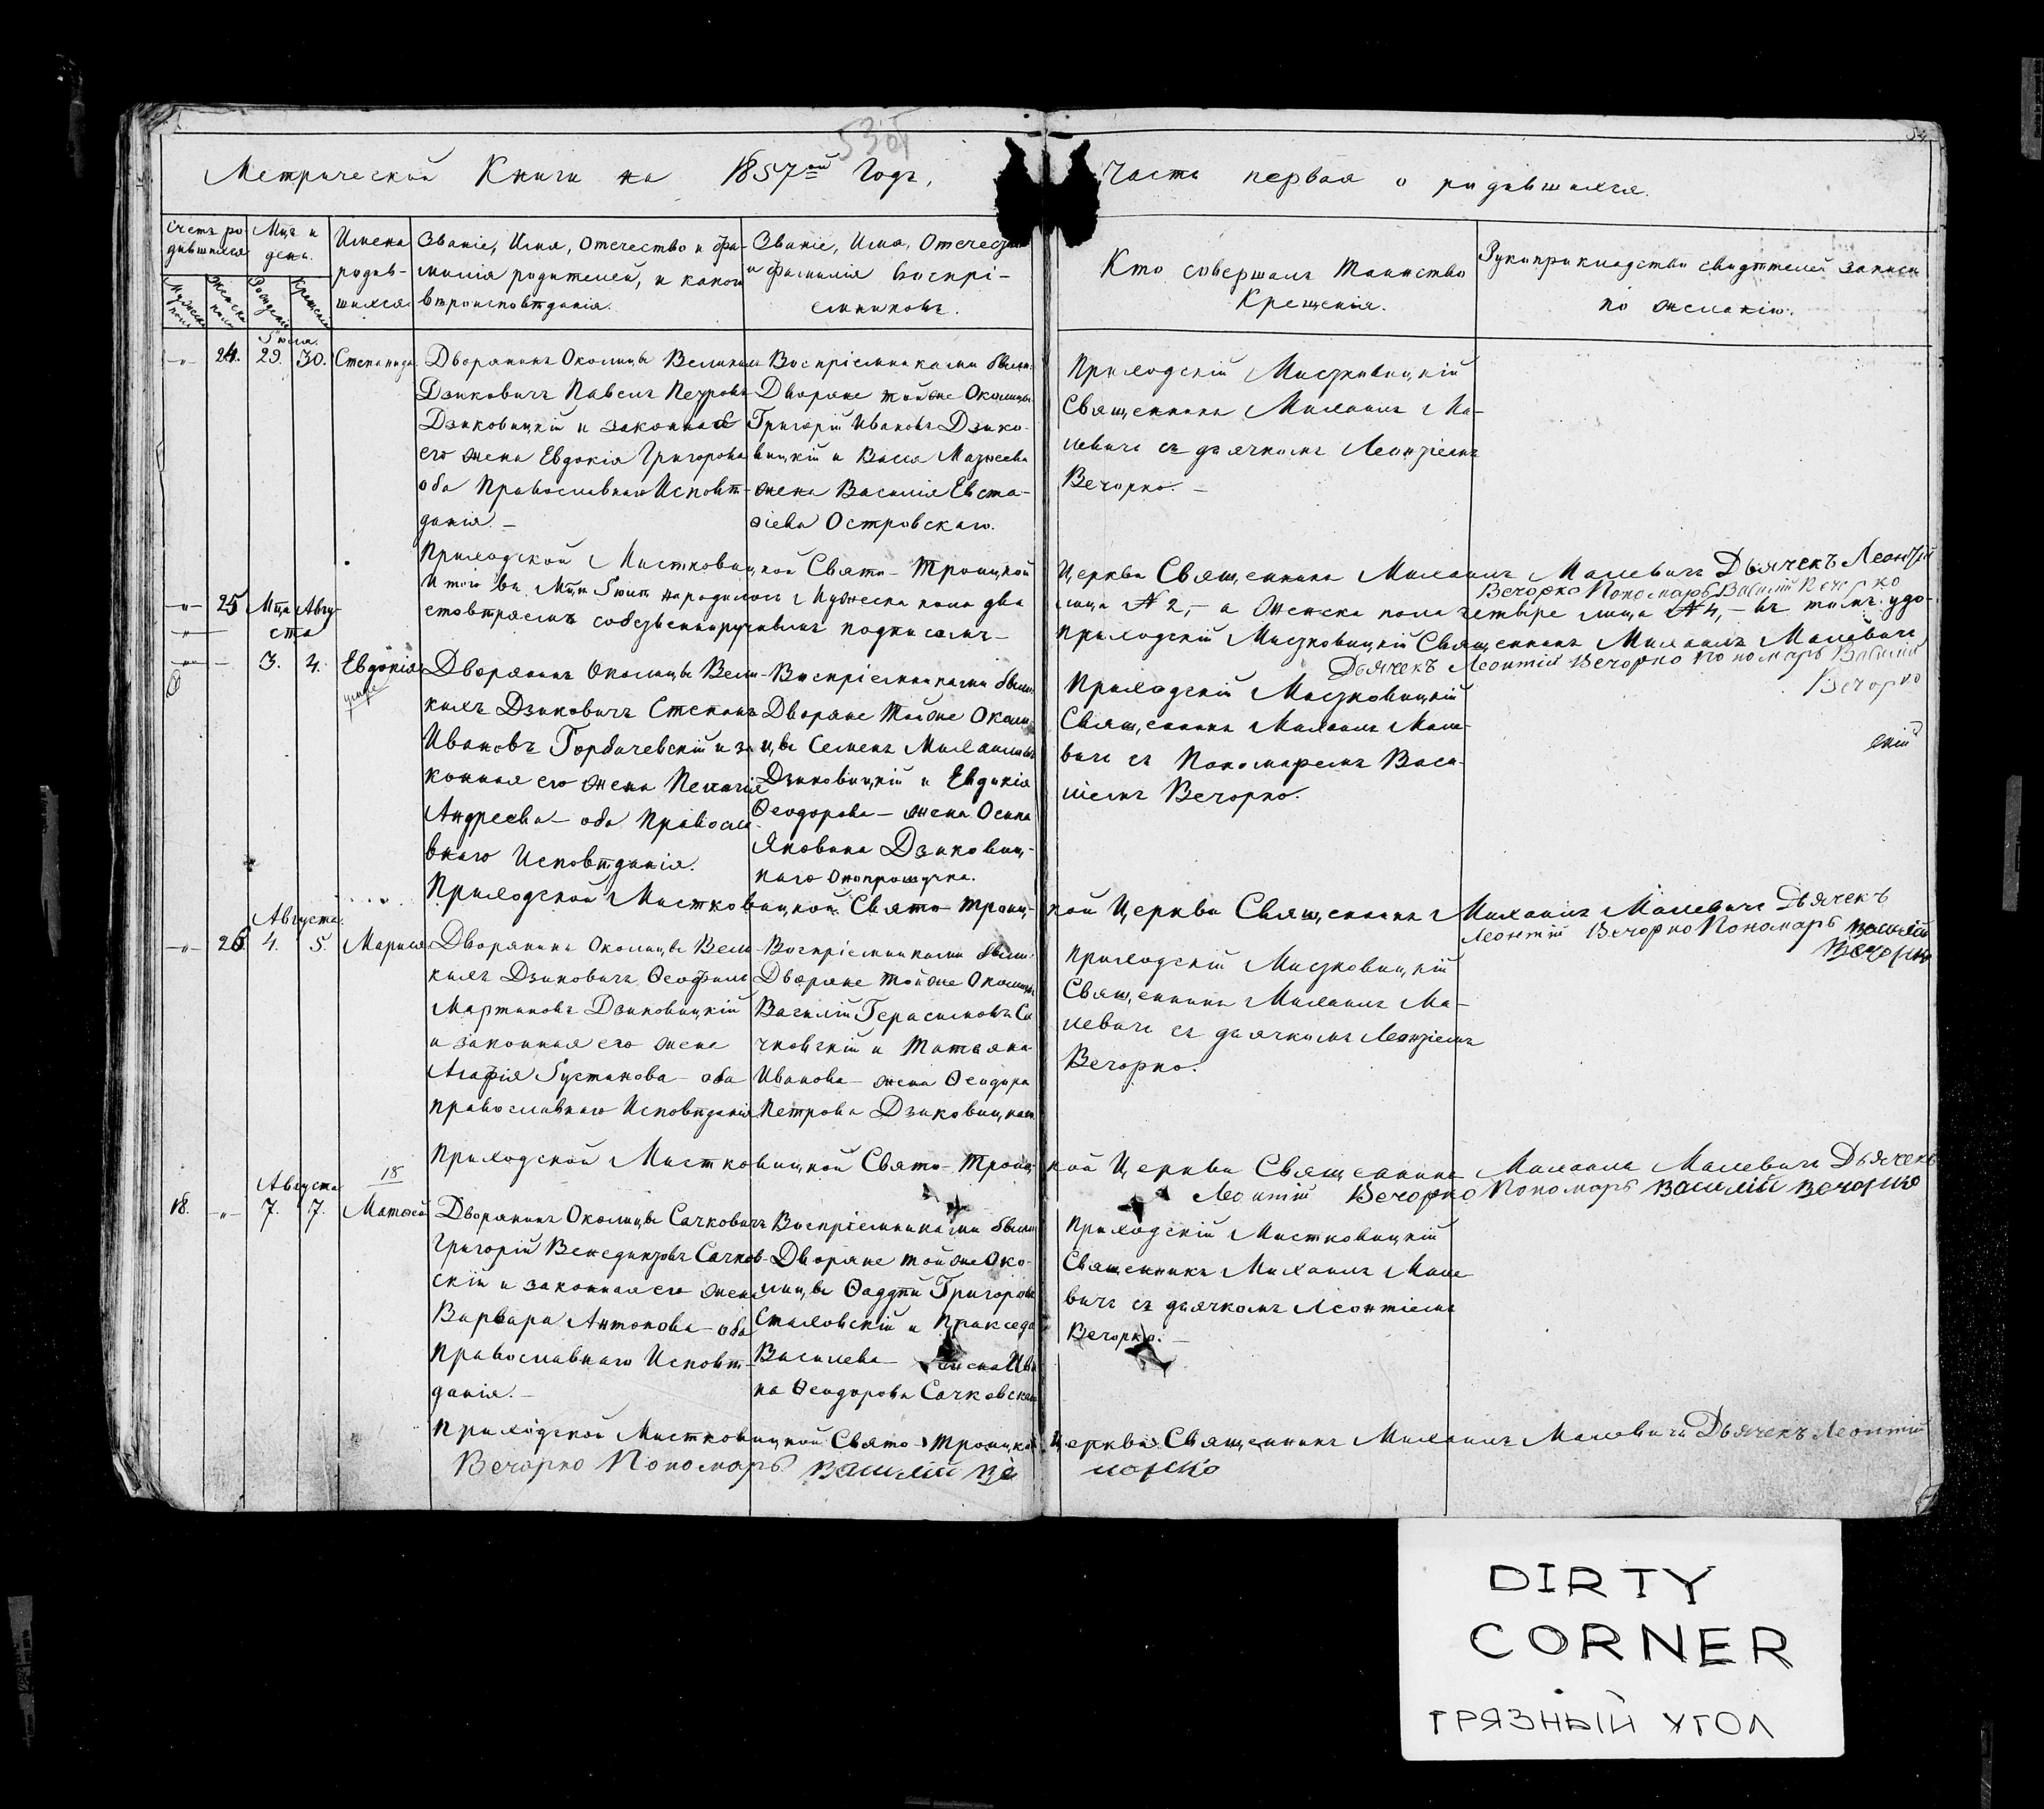 Метрической Книги на 1857ой Годъ,
Часть первая о родившихся.
Счетъ ро-
дившихся
Мужеска
пола
Женска
пола
Мця и
день.
Рожденія
Крещенія
Имена
родив-
шихся
Званіе, Имя, Отечество и фа-
милія родителей, и какого
вѣроисповѣданія.
Званіе, Имя, Отечество
и фамилія воспрі-
емниковъ.
Кто совершалъ Таинство
Крещенія.
Рукоприкладство свидѣтелей записи
по желанію.
Іюля.
24. 29. 30. Степанида.
Дворянинъ Околицы Великихъ
Дзиковичъ Павелъ Петровъ
Дзиковицкій и законная
его жена Евдокія Григорова
оба Православнаго Исповѣ-
данія. —
Воспріемниками были
Дворяне тойже Околицы
Григорій Ивановъ Дзико-
вицкій и Васса Матѳеева
жена Василія Евста-
ѳіева Островскаго.
Приходскій Мистковицкій
Священникъ Михаилъ Ма-
левичъ съ дьячкомъ Леонтіемъ
Вечорко. —
Приходской Мистковицкой Свято-Троицкой Церкви Священникъ Михаилъ Малевичъ Дьячекъ Леонтій
Вечорко Пономарь Василій Вечорко
Итого въ Мцѣ Іюлѣ народилось Мужеска пола два лица № 2, — а Женска пола четыре лица № 4, — въ томъ удо-
стовѣряемъ собственноручнымъ подписомъ — Приходскій Мистковицкій Священникъ Михаилъ Малевичъ
Дьячекъ Леонтій Вечорко Пономарь Василій
Вечорко
25 Мца Авгу-
ста
3. 4. Евдокія
умре
Дворянинъ Околицы Вели-
кихъ Дзиковичъ Степанъ
Ивановъ Горбачевскій и за-
конная его жена Пелагія
Андреева — оба Православ-
внаго Исповѣданія.
Воспріемниками были
Дворяне Тойже Околи-
цы Семенъ Михаиловъ
Дзиковицкій и Евдокія
Ѳеодорова — жена Осипа
Яковина Дзиковиц-
каго
Приходскій Мистковицкій
Священникъ Михаилъ Мале-
вичъ съ Пономаремъ Васи-
ліемъ Вечорко.
Приходской Мистковицкой Свято-Троиц-кой Церкви Священникъ Михаилъ Малевичъ Дьячекъ
Леонтій Вечорко Пономарь Василій
Вечорко
Августа.
26 4. 5. Марися
Дворянинъ Околицы Вели-
кихъ Дзиковичъ Ѳеофилъ
Мартиновъ Дзиковицкій
и законная его жена
Агафія Іустинова — оба
православнаго Исповѣданія
Воспріемниками были
Дворяне тойже Околицы
Василій Герасимовъ Са-
чковскій и Татьяна
Иванова — жена Ѳеодора
Петрова Дзиковицкаго
Приходскій Мистковицкій
Священникъ Михаилъ Ма-
левичъ съ дьячкомъ Леонтіемъ
Вечорко.
Приходской Мистковицкой Свято-Троиц-кой Церкви Священникъ Михаилъ Малевичъ Дьячекъ
Леонтій Вечорко Пономарь Василій Вечорко
Августа
18
18. 7. 7. Матѳей
Дворянинъ Околицы Сачковичъ
Григорій Венедиктовъ Сачков-
скій и законная его жена
Варвара Антонова — оба
Православнаго Исповѣ-
данія. —
Воспріемниками были
Дворяне тойже Око-
лицы Ѳаддѣй Григоровъ
Стаховскій и Праксeда
Васильева — жена Ива-
на Ѳеодорова Сачковскаго
Приходскій Мистковицкій
Священникъ Михаилъ Мале-
вичъ съ дьячкомъ Леонтіемъ
Вечорко. —
Приходской Мистковицкой Свято-Троицкой Церкви Священникъ Михаилъ Малевичъ Дьячекъ Леонтій
Вечорко Пономарь Василій Вечорко
DIRTY
CORNER
ГРЯЗНЫЙ УГОЛ